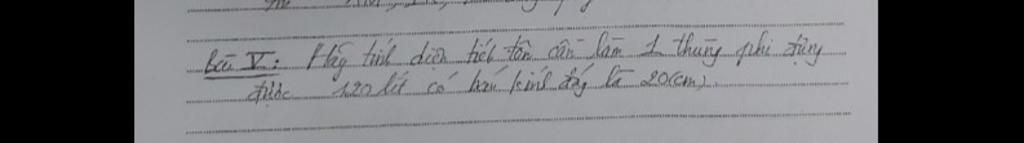 Bài V: Hãy tính diện tích tôn cần làm 1 thùng phi đựng
được 120 lít có bán kính đáy là 20(cm).